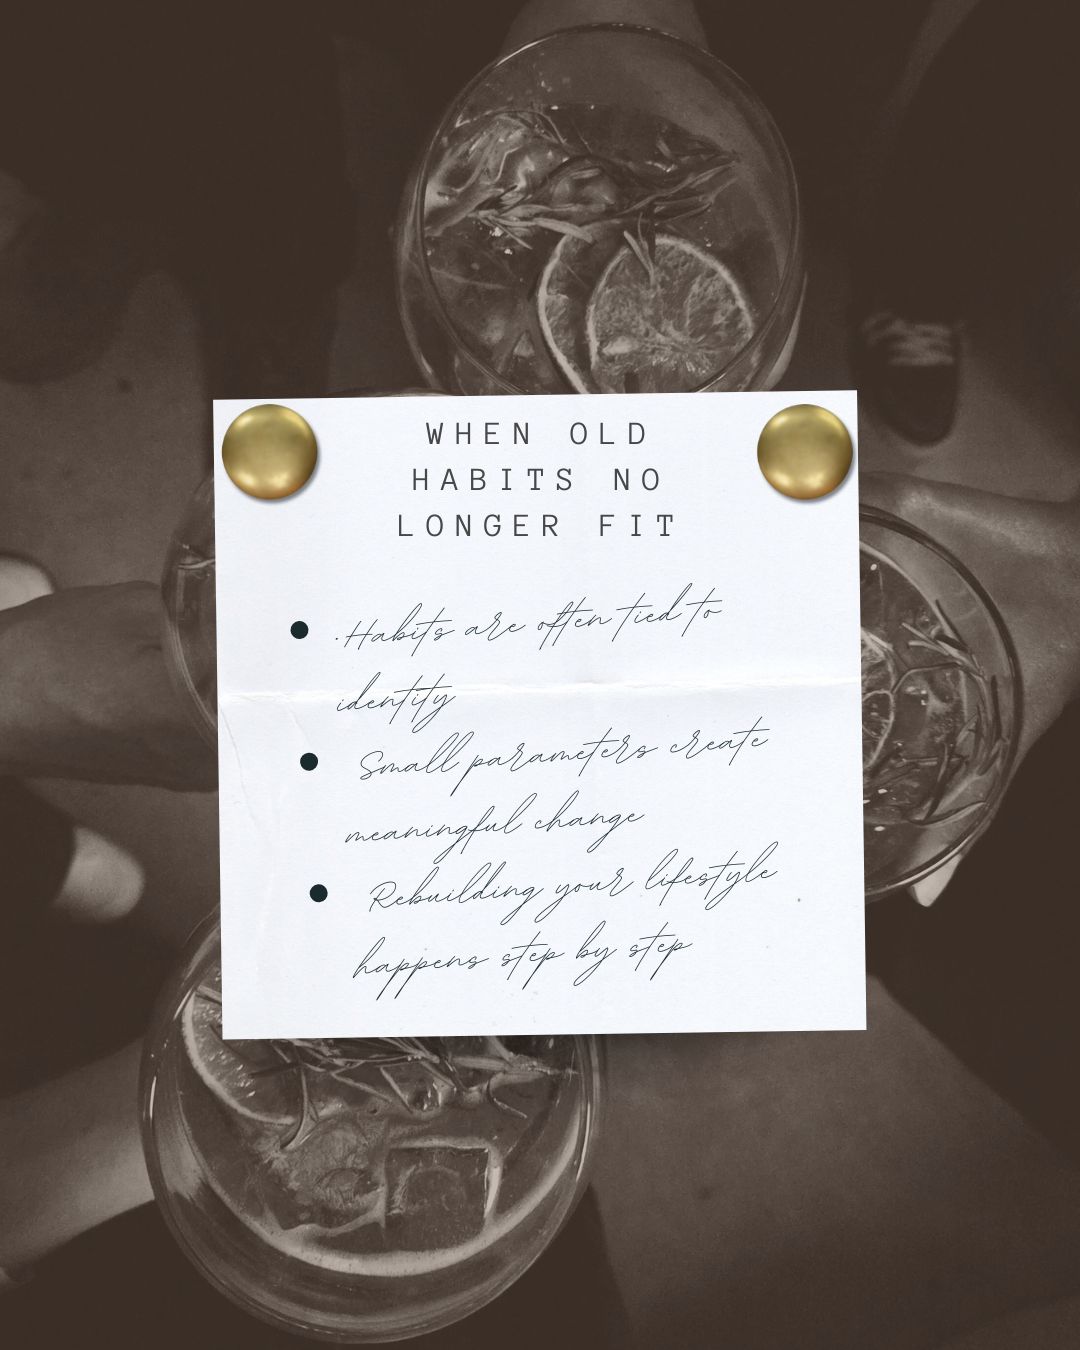 WHEN OLD
HABITS NO
LONGER FIT
• .Habits are often tied to
identity
• Small parameters create
meaningful change
• Rebuilding your lifestyle
happens step by step